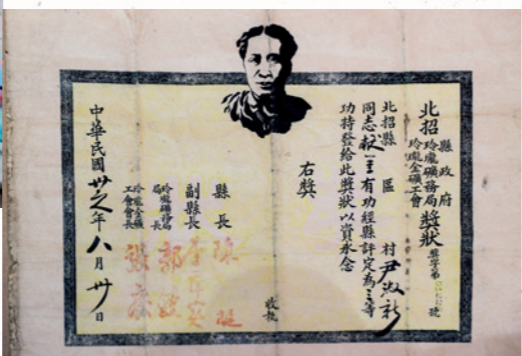 北招縣政府
玲瓏礦務局
玲瓏金礦工會
獎狀
獎字第 號
北招縣 區 村 尹淑新
同志 有功經縣評定為三等
功特發給此獎狀以資永念
右獎
收執
縣長 陳
副縣長
玲瓏礦務局局長 郭
玲瓏金礦工會會長 張
中華民國卅 年八月卅日